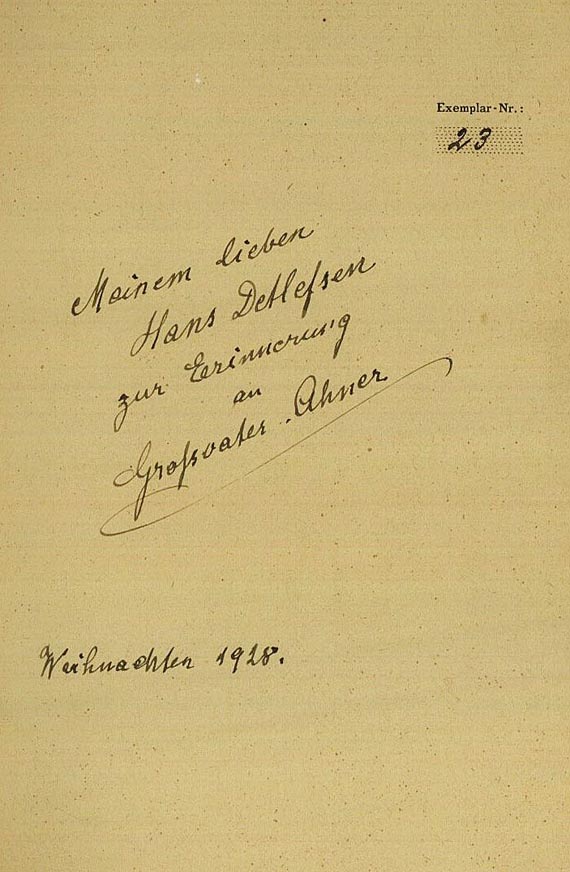 Exemplar-Nr.:
23
Meinem lieben
Hans Detlefsen
zur Erinnerung
an
Großvater Ahner
Weihnachten 1928.